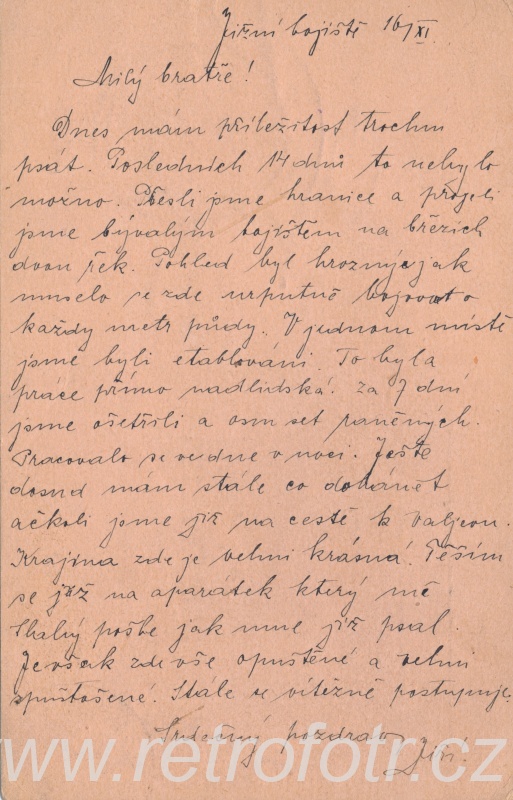 Jižní bojiště 16/XI.
Milý bratře!
Dnes mám příležitost trochu
psát. Posledních 14 dnů to nebylo
možno. Přešli jsme hranice a projeli
jsme bývalým bojištěm na březích
dvou řek. Pohled byl hrozný jak
muselo se zde urputně bojovat o
každy metr půdy. V jednom místě
jsme byli etablováni. To byla
práce přímo nadlidská. Za 7 dní
jsme ošetřili a osm set raněných.
Pracovalo se ve dne v noci. Ještě
dosud mám stále co dohánět
ačkoli jsme již na cestě k Valjevu.
Krajina zde je velmi krásná. Těším
se již na aparátek který mě
Skalný pošle jak mne již psal.
Je však zde vše opuštěné a velmi
spustošené. Stále se vítězně postupuje.
Srdečný pozdrav Jiří.
www.retrofotr.cz